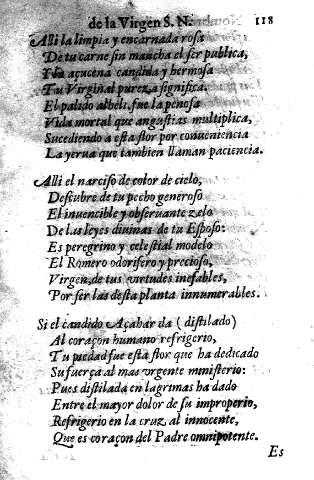 de la Virgen S. N. 118
Alli la limpia y encarnada rosa
De tu carne sin mancha el ser publica,
Y la açucena candida y hermosa
Tu Virginal pureza significa.
El palido alheli, fue la penosa
Vida mortal que angustias multiplica,
Sucediendo a esta flor por conueniencia
La yerua que tambien llaman paciencia.
Alli el narciso de color de cielo,
Descubre de tu pecho generoso
El inuencible y obseruante zelo
De las leyes diuinas de tu Esposo:
Es peregrino y celestial modelo
El Romero odorifero y precioso,
Virgen, de tus virtudes inefables,
Por ser las desta planta innumerables.
Si el candido Açahar da (distilado)
Al coraçon humano refrigerio,
Tu piedad fue esta flor que ha dedicado
Su fuerça al mas vrgente ministerio:
Pues distilada en lagrimas ha dado
Entre el mayor dolor de su improperio,
Refrigerio en la cruz al innocente,
Que es coraçon del Padre omnipotente.
Es